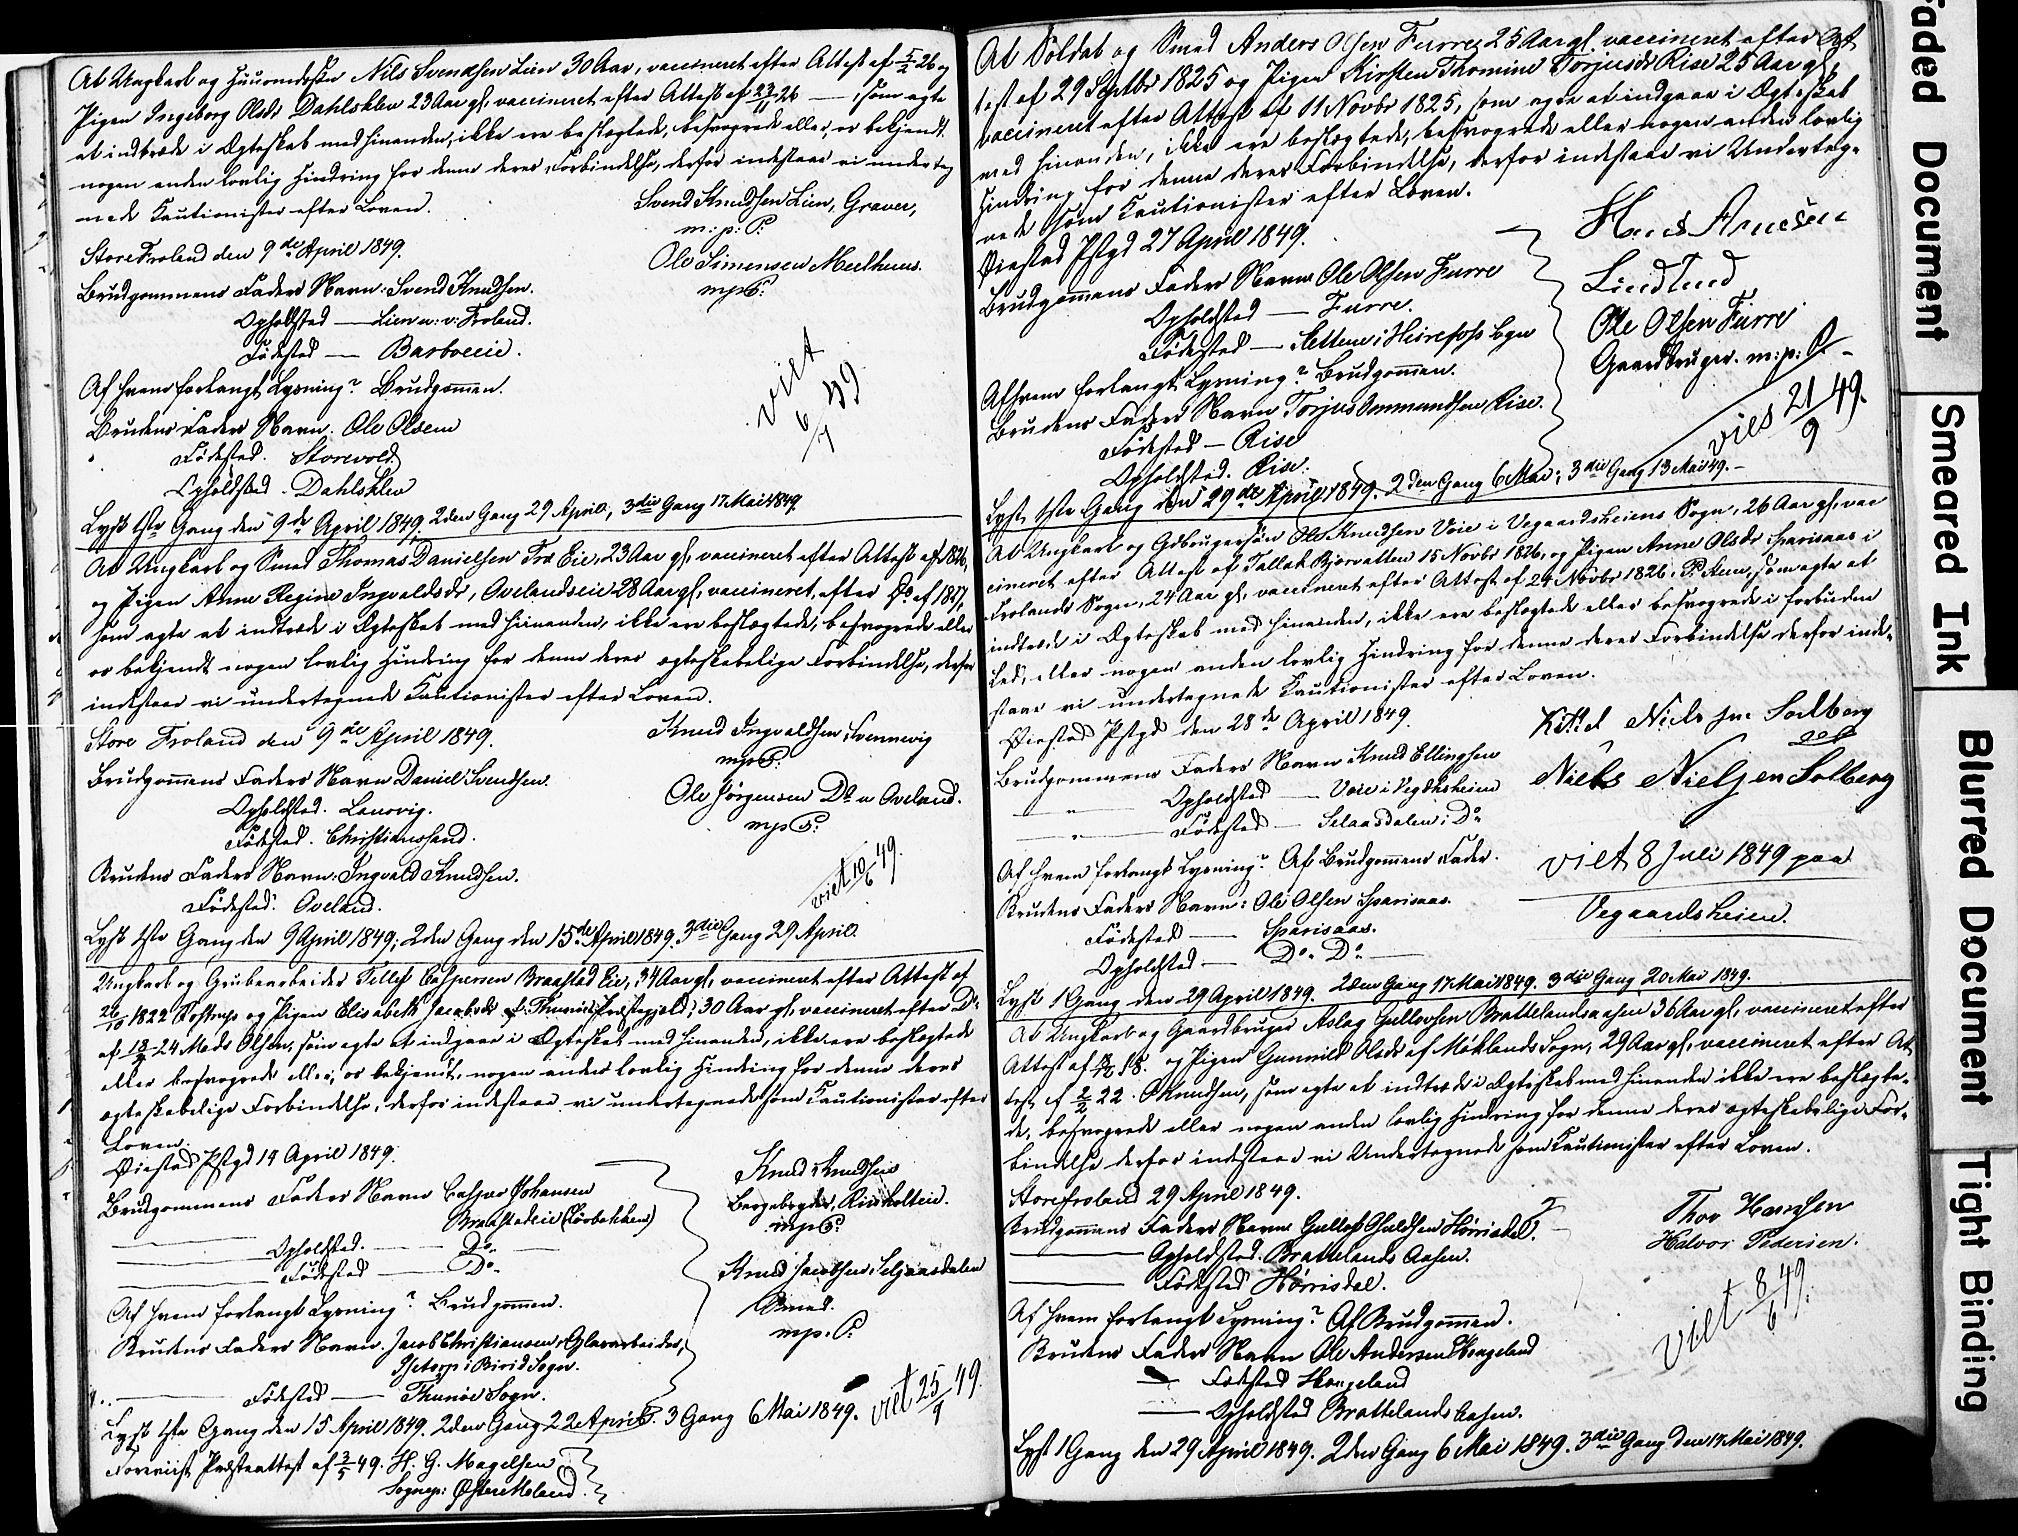 At Ungkarl og Huusmandssøn Nils Svendsen Lien 30 Aar, vaccineret efter Attest af 5/2 26 og
Pigen Ingeborg Olsdr Dahlsklev 23 Aar gl. vaccineret efter Attest af 23/11 26 — , som agte
at indtræde i Ægteskab med hinanden, ikke ere beslægtede, besvogrede eller, os bekjendt,
nogen anden lovlig Hindring for denne deres Forbindelse, derfor indestaae vi underteg
nede Kautionister efter Loven.
Svend Knudsen Lien, Graver,
m: p: P:
Store Froland den 9de April 1849.
Ole Simensen Mælhuus.
mpP:
Brudgommens Faders Navn: Svend Knudsen.
Opholdsted — Lien u: v: Froland.
Fødested — Barboeie.
Af hvem forlangt Lysning? Brudgommen.
viet 6/7 49
Brudens Faders Navn. Ole Olsen
Fødested. Storevold
Opholdsted. Dahlsklev
Lyst 1ste Gang den 9de April 1849, 2den Gang 29 April, 3die Gang 17 Mai 1849
At Ungkarl og Smed Thomas Danielsen Froe Eie, 23 Aar gl, vaccineret efter Attest af 1826,
og Pigen Anne Regine Ingvaldsdr, Ovelandseie 28 Aar gl, vaccineret, efter Do af
som agte at indtræde i Ægteskab med hinanden, ikke ere beslægtede, besvogrede eller
os bekjendt nogen lovlig Hindring for denne deres ægteskabelige Forbindelse, derfor
indestaae vi undertegnede Kautionister efter Loven.
Store Froland den 9de April 1849.
Knud Ingvaldsen, Svennevig
mpP:
Brudgommens Faders Navn Daniel Svendsen.
Ole Jørgensen Do u Oveland.
mpP:
Opholdsted. Lenevig.
Fødested. Christianssand.
Brudens Faders Navn: Ingvald Knudsen.
viet 10/6 49.
Fødested: Oveland.
Lyst 1ste Gang den 9 April 1849; 2den Gang den 15de April 1849. 3die Gang 29 April.
Ungkarl og Grubearbeider Tellef Caspersen Braastad Eie, 34 Aar gl, vaccineret efter Attest af
26/10 1822 og Pigen Elisabeth Jacobsdr Præstegjeld, 30 Aar gl, vaccineret efter Do
af 18/ 24 Mads Olsen, som agte at indgaae i Ægteskab med hinanden, ikke ere beslægtede
eller besvogrede eller, os bekjendt, nogen anden lovlig Hindring for denne deres
ægteskabelige Forbindelse, derfor indestaae vi undertegnede som Kautionister efter
Loven.
Øiestad Pstgd 14 April 1849.
Knud Knudsen
Brudgommens Faders Navn Casper Johansen
Bergebryder, Rinholteie.
Braastadeie
mpP:
— Opholdsted. — Do.
— Fødested — Do.
Knud Jacobsen, Seljaasdalen
Smed.
Af hvem forlangt Lysning? Brudgommen.
mp. P:
Brudens Faders Navn. Jacob Christiansen, Glasarbeider,
i Birid Sogn.
— Fødested — Sogn.
viet 25/9 49.
Lyst 1ste Gang den 15 April 1849. 2den Gang 22 April. 3 Gang 6 Mai 1849.
Foreviist Præsteattest af 3/5 49. H. G. Magelsen
Sognep: Østre Moland.
At Soldat og Smed Anders Olsen Furre 25 Aar gl. vaccineret efter At
test af 29 Septbr 1825 og Pigen Kirsten Thomine Torjusdr Rise 25 Aar gl,
vaccineret efter Attest af 11 Novbr 1825, som agte at indgaae i Ægteskab
med hinanden, ikke ere beslægtede, besvogrede eller nogen anden lovlig
Hindring for denne deres Forbindelse, derfor indestaae vi Underteg-
nede som Kautionister efter Loven.
Øiestad Pstgd 27 April 1849.
Hans Arnesen
Lindtved
Brudgommens Faders Navn Ole Olsen Furre
Opholdsted — Furre.
Ole Olsen Furre
Fødested — i Heirefos Sogn
Gaardbruger. m: p: P.
Af hvem forlangt Lysning? Brudgommen.
Brudens Faders Navn Torjus Ommundsen Rise.
viet 21/9 49.
Fødested — Rise
Opholdsted. Rise.
Lyst 1ste Gang den 29de April 1849. 2den Gang 6 Mai; 3die Gang 13 Mai 49. —
At Ungkarl og Gdbrugersøn Ole Knudsen Voie i Vegaardsheiens Sogn, 26 Aar gl, vac
cineret efter Attest af Tallak Bjorvatten 15 Novbr 1826, og Pigen Anne Olsdr Sparisaas i
Frolands Sogn, 24 Aar gl, vaccineret efter Attest af 24 Novbr 1826. som agte at
indtræde i Ægteskab med hinanden, ikke ere beslægtede eller besvogrede i forbuden
Led, eller nogen anden lovlig Hindring for denne deres Forbindelse derfor inde-
staae vi undertegnede Kautionister efter Loven.
Øiestad Pstgd den 28de April 1849.
Niels Solberg
Brudgommens Faders Navn Knud Ellingsen
Niels Nielsen Solberg
" — Opholdsted — Voie i Vegdsheien
" — Fødested — Selaasdalen i Do
Af hvem forlangt Lysning? Af Brudgommens Fader.
viet 8 Juli 1849 paa
Vegaardsheien.
Brudens Faders Navn: Ole Olsen Sparisaas.
Fødested — Sparisaas.
Opholdsted — Do. Do. —
Lyst 1 Gang den 29 April 1849. 2den Gang 17 Mai 1849. 3die Gang 20 Mai 1849.
At Ungkarl og Gaardbruger Aslag Gullovsen Brattelandsaasen 36 Aar gl, vaccineret efter
Attest af og Pigen Gunnild Olsdr af Moklands Sogn, 29 Aar gl, vaccineret efter At
test af 2/2 22. OKnudsen, som agte at indtræde i Ægteskab med hinanden ikke ere beslægte-
de, besvogrede eller nogen anden lovlig Hindring for denne deres ægteskabelige For-
bindelse derfor indestaae vi Undertegnede som Kautionister efter Loven.
Storefroland 29 April 1849.
Thor Hansen
Brudgommens Faders Navn Gullof Hørrisdal.
Halvor Pedersen.
— Opholdsted. Brattelands Aasen.
— Fødested Hørrisdal.
Af hvem forlangt Lysning? Af Brudgommen.
viet 8/6 49.
Brudens Faders Navn Ole Andersen Haugeland
— Fødested Haugeland
— Opholdsted Brattelands Aasen.
Lyst 1 Gang den 29 April 1849. 2den Gang 6 Mai 1849. 3die Gang den 17 Mai 1849.
Faded Document
Smeared Ink
Blurred Document
Tight Binding